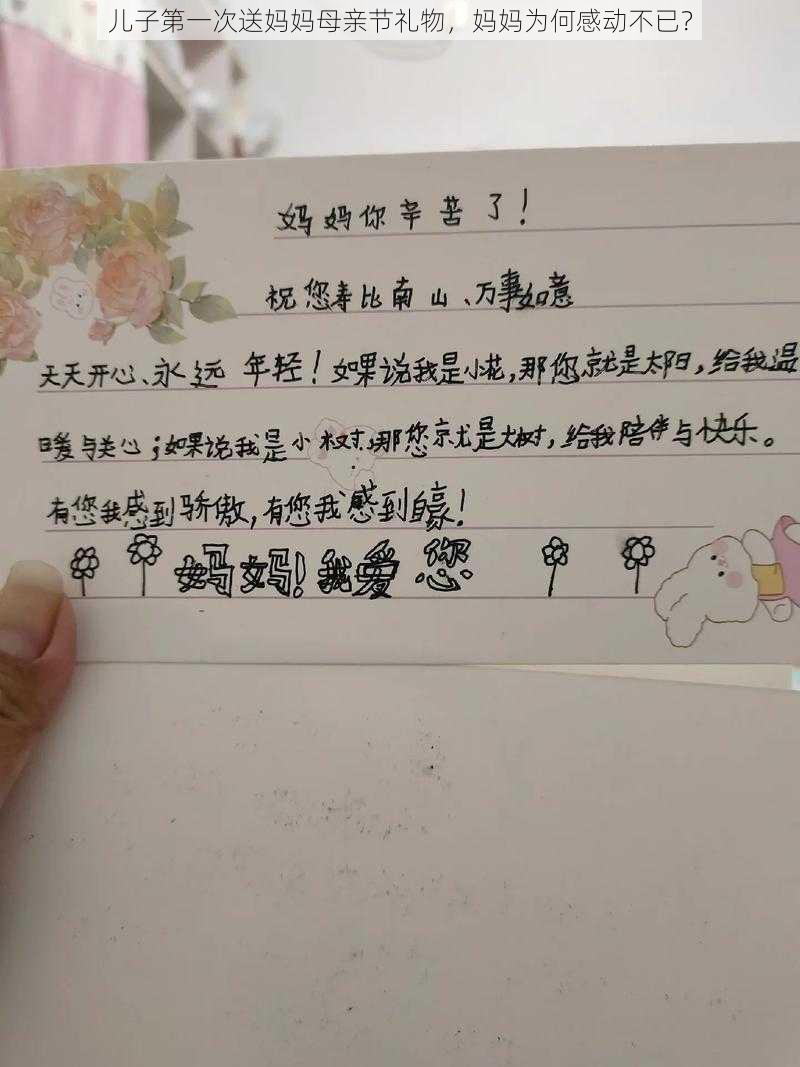 儿子第一次送妈妈母亲节礼物，妈妈为何感动不已？
妈妈你辛苦了！
祝您寿比南山、万事如意
天天开心、永远年轻！如果说我是小花，那您就是太阳，给我温
暖与关心；如果说我是小树，那您就是大树，给我陪伴与快乐。
有您我感到骄傲，有您我感到自豪！
妈妈！我爱您